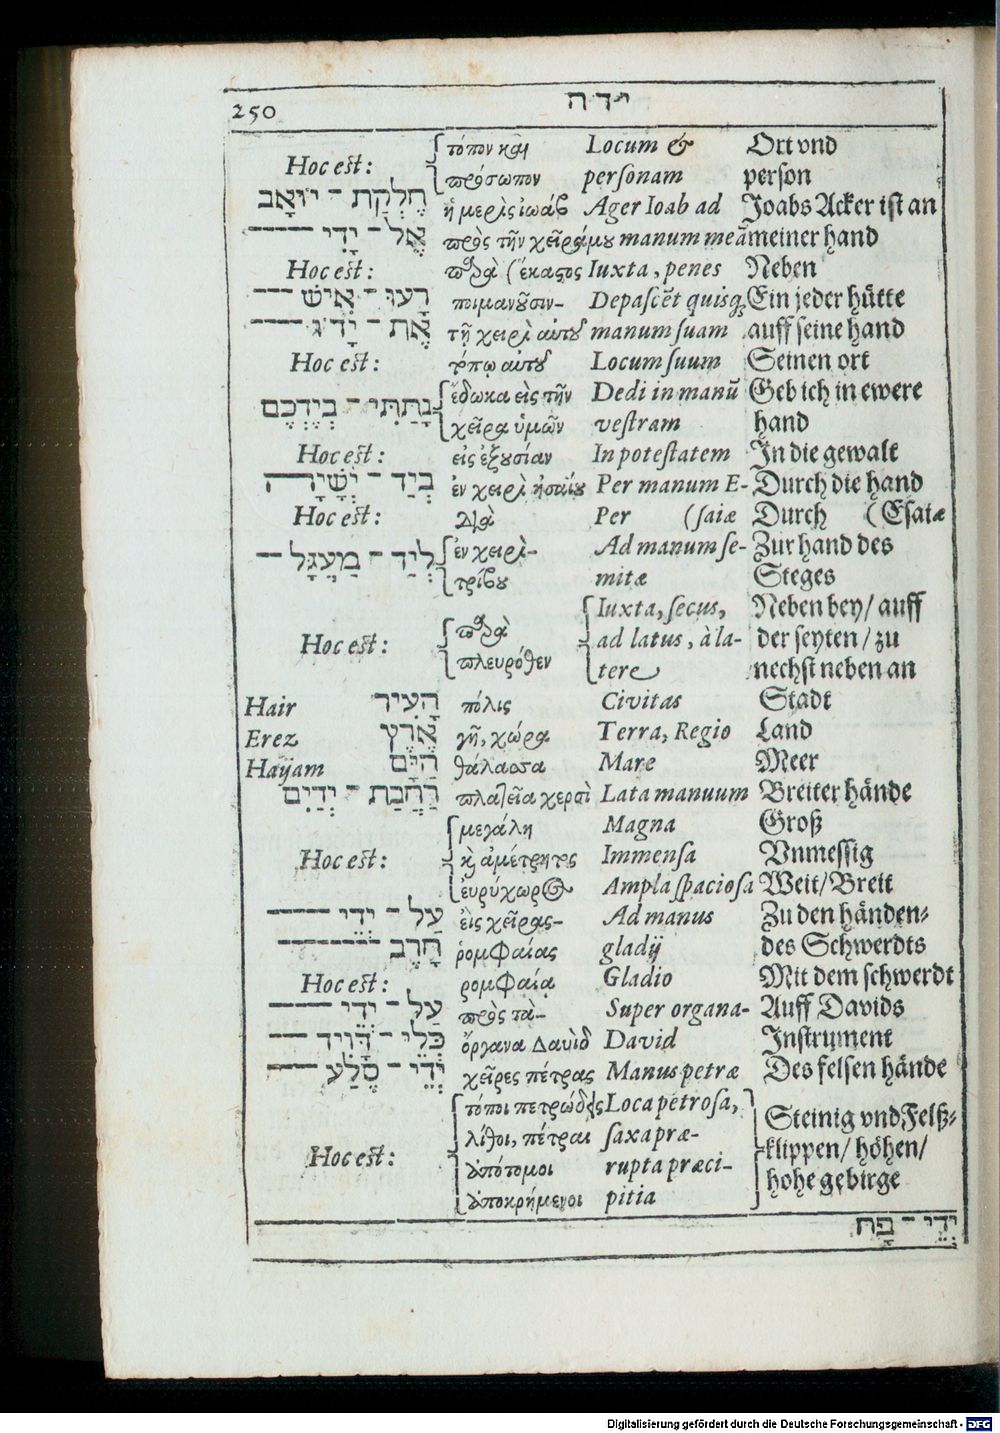 250 ידה
Hoc est: τόπον καὶ Locum & Ort vnd
πρόσωπον personam person
חֶלְקַת־יוֹאָב ἡ μερὶς ἰωὰβ Ager Ioab ad Joabs Acker ist an
אֶל־יָדִי πρὸς τὴν χεῖρά μου manum meā meiner hand
Hoc est: παρὰ (ἕκαστος Iuxta, penes Neben
רָעוּ־אִישׁ ποιμανοῦσιν- Depascēt quisq; Ein jeder hütte
אֶת־יָדוֹ τῇ χειρὶ αὐτοῦ manum suam auff seine hand
Hoc est: τόπῳ αὐτοῦ Locum suum Seinen ort
נָתַתִּי־בְיֶדְכֶם ἔδωκα εἰς τὴν Dedi in manū Geb ich in ewere
χεῖρα ὑμῶν vestram hand
Hoc est: εἰς ἐξουσίαν In potestatem In die gewalt
בְּיַד־יְשָׁיָה ἐν χειρὶ ἠσαΐου Per manum E- Durch die hand
Hoc est: διὰ Per (saiæ Durch (Esaiæ
לְיַד־מַעְגָּל ἐν χειρὶ- Ad manum se- Zur hand des
τρίβου mitæ Steges
Iuxta, secus, Neben bey/ auff
Hoc est: παρὰ ad latus, à la- der seyten/ zu
πλευρόθεν tere nechst neben an
Hair הָעִיר πόλις Civitas Stadt
Erez אֶרֶץ γῆ, χώρα Terra, Regio Land
Haijam הַיָּם θάλασσα Mare Meer
רַחֲבַת־יָדַיִם πλατεῖα χερσὶ Lata manuum Breiter hände
μεγάλη Magna Groß
Hoc est: κὶ ἀμέτρητος Immensa Vnmessig
εὐρύχωρος Ampla spaciosa Weit/ Breit
עַל־יְדֵי εἰς χεῖρας- Ad manus Zu den händen-
חָרֶב ῥομφαίας gladij des Schwerdts
Hoc est: ρομφαίᾳ Gladio Mit dem schwerdt
עַל־יְדֵי πρὸς τὰ- Super organa- Auff Davids
כְּלֵי־דָּוִיד ὄργανα Δαυὶδ David Instrument
יְדֵי־סֶלַע χεῖρες πέτρας Manus petræ Des felsen hände
τόποι πετρώδεις Loca petrosa, Steinig vnd Felß-
λίθοι, πέτραι saxa præ- klippen/ höhen/
Hoc est: ἀπότομοι rupta præci- hohe gebirge
ἀποκρήμενοι pitia
יְדֵי־פַת
Digitalisierung gefördert durch die Deutsche Forschungsgemeinschaft - DFG